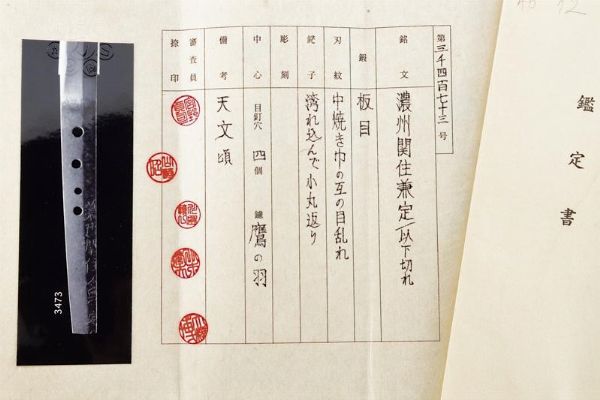 鑑定書
第三千四百七十三号
銘文 濃州関住兼定/以下切れ
鍛 板目
刃紋 中焼き巾の互の目乱れ
鋩子 湾れ込んで小丸返り
彫刻
中心 目釘穴 四個 鑢 鷹の羽
備考 天文頃
審査員
捺印
3473